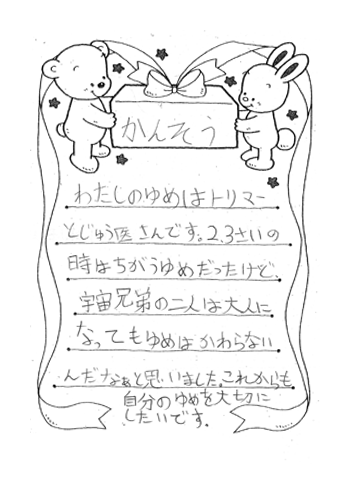 かんそう
わたしのゆめはトリマー
とじゅう医さんです。2,3さいの
時はちがうゆめだったけど、
宇宙兄弟の二人は大人に
なってもゆめはかわらない
んだなぁと思いました。これからも
自分のゆめを大切に
したいです.